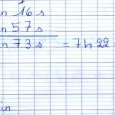 n 16 s
n 57 s
n 73 s = 7h 22
in